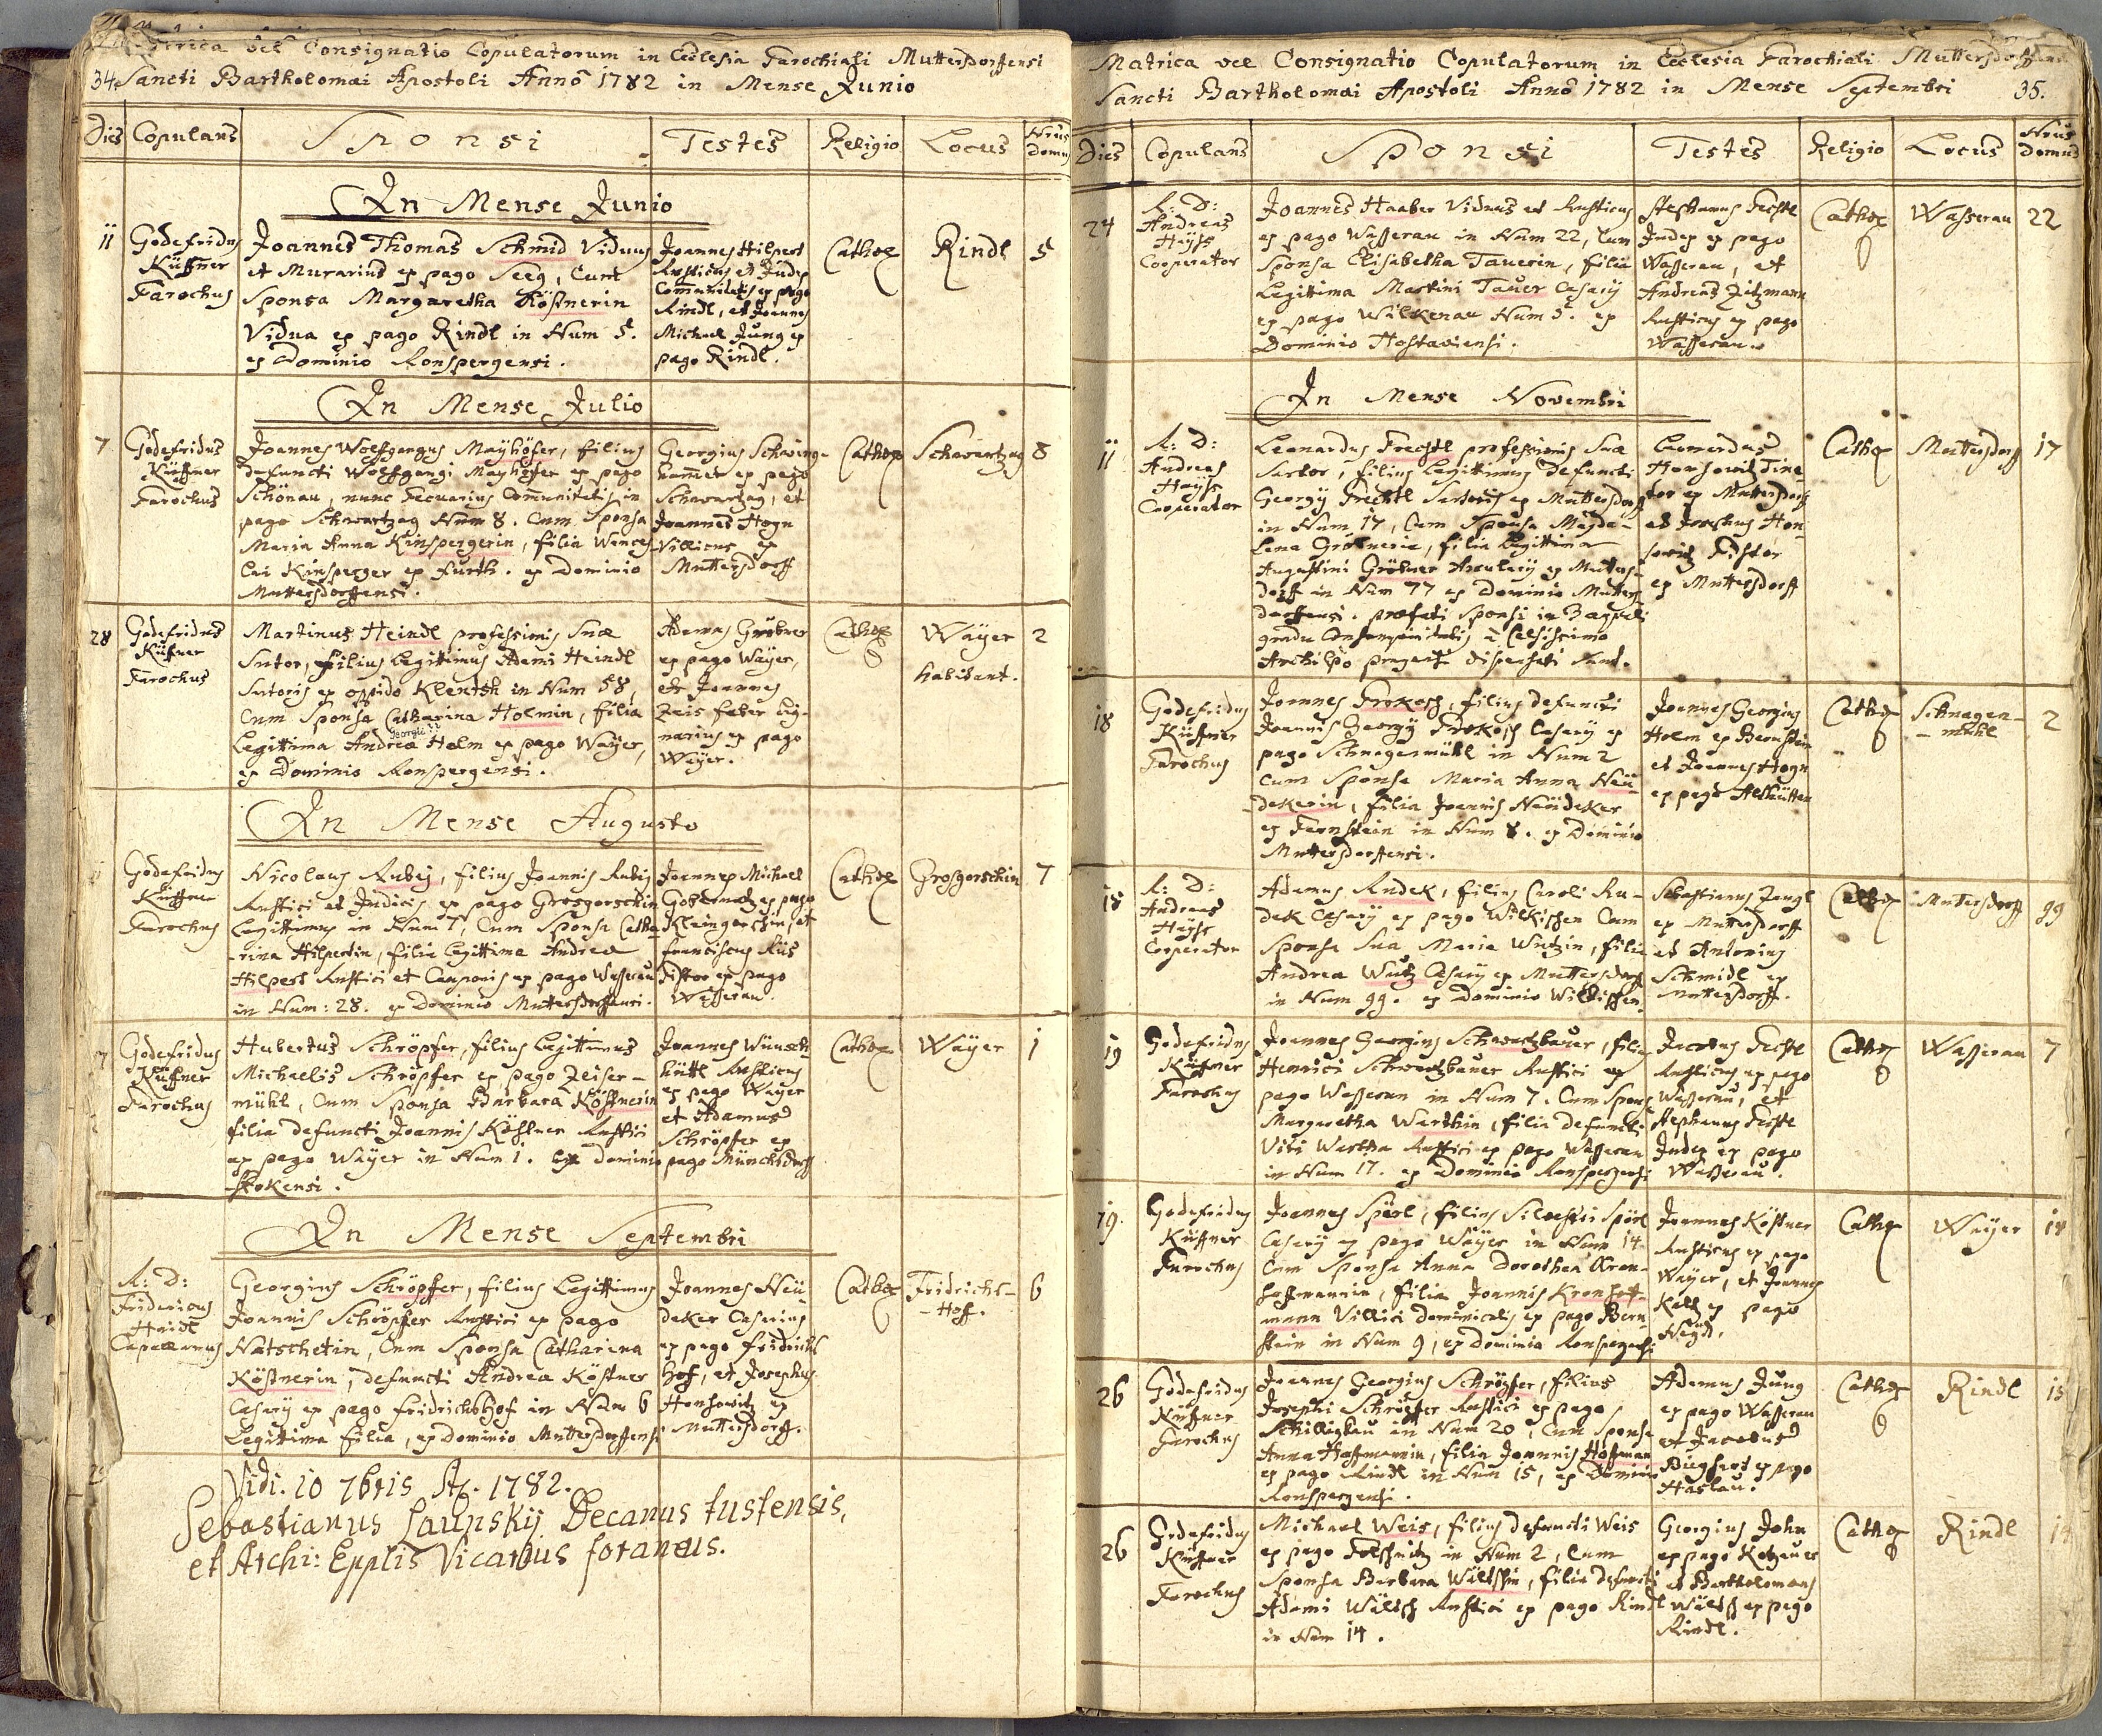 Matrica vel Consignatio Copulatorum in Ecclesia Parochiali Muttersdorffensi
34. Sancti Bartholomæi Apostoli Anno 1782 in Mense Junio
Dies Copulans Sponsi Testes Religio Locus Nrus Domus
In Mense Junio
11
Godefridus
Küffner
Parochus
Joannes Thomas Schmid Viduus
et Murarius ex pago Seeg, Cum
Sponsa Margaretha Köstnerin
Vidua ex pago Rindl in Num 5.
ex Dominio Ronspergensi.
Joannes Hilpert
Rusticus et Judex
Communitatis ex pago
Rindl, et Joannes
Michael Jung ex
pago Rindl.
Cathol
Rindl
5
In Mense Julio
7
Godefridus
Küffner
Parochus
Joannes Wolfgangus Mayhöfer, filius
defuncti Wolfgangi Mayhöfer ex pago
Schönau, nunc Pecuarius Communitatis in
pago Schwartzag Num 8. Cum Sponsa
Maria Anna Kinspergerin, filia Wences-
lai Kinsperger ex Furth. ex Dominio
Muttersdorffensi.
Georgius Schwing-
hamer ex pago
Schwartzag, et
Joannes Hogn
Villicus ex
Muttersdorff
Cathol
Schwartzag
8
28
Godefridus
Küffner
Parochus
Martinus Heindl professionis Suæ
Sutor, filius Legittimus Adami Heindl
Sutoris ex oppido Klentsch in Num 58,
Cum Sponsa Catharina Holmin, filia
Georgii
Legittima Andreæ Holm ex pago Waÿer,
ex Dominio Ronspergensi.
Adamus Gröbner
ex pago Waÿer,
et Joannes
Zeis faber lig-
narius ex pago
Waÿer.
Cathol
Waÿer
habitant.
2
In Mense Augusto
Godefridus
Küffner
Parochus
Nicolaus Rubeÿ, filius Joannis Rubeÿ
Rustici et Judicis ex pago Grosgorschin
Legittimus in Num 7, Cum Sponsa Catha-
-rina Hilpertin, filia Legittima Andreæ
Hilpert Rustici et Cauponis ex pago Wasserau
in Num: 28. ex Dominio Muttersdorffensi.
Joannes Michael
ex pago
Kleingorschin, et
Franciscus
Pistor ex pago
Wasserau.
Cathol
Grosgorschin
7
Godefridus
Küffner
Parochus
Hubertus Schröpfer, filius Legittimus
Michaelis Schröpfer ex pago Zeiser-
mühl, Cum Sponsa Barbara Köstnerin
filia defuncti Joannis Köstner Rustici
ex pago Waÿer in Num 1. ex Dominio
Stokensi.
Joannes Wünsch-
hüttl Rusticus
ex pago Waÿer
et Adamus
Schröpfer ex
pago Münchsdorff
Cathol
Waÿer
1
In Mense Septembri
R: D:
Fridericus
Haidl
Capellanus
Georgius Schröpfer, filius Legittimus
Joannis Schröpfer Rustici ex pago
Natschetin, Cum Sponsa Catharina
Köstnerin, defuncti Andreæ Köstner
Casarÿ ex pago Fridrichshof in Num 6
Legittima filia, ex Dominio Muttersdorffensi
Joannes Neü-
deker Casarius
ex pago Fridrichs
hof, et Josephus
Honsowitz ex
Muttersdorff.
Cathol
Fridrichs-
-Hoff.
6
Vidi. 10 7bris Aõ. 1782.
Sebastianus Launskÿ Decanus tustensis,
et Archi: Epplis Vicarius foraneus.
Matrica vel Consignatio Copulatorum in Ecclesia Parochiali Muttersdorffensi
Sancti Bartholomæi Apostoli Anno 1782 in Mense Septembri 35.
Dies Copulans Sponsi Testes Religio Locus Nrus Domus
24
R: D:
Andreas
Haÿsr
Cooperator
Joannes Haaber Viduus et Rusticus
ex pago Wasserau in Num 22, Cum
Sponsa Elisabetha Tauerin, filia
Legittima Martini Tauer Casarÿ
ex pago Wilkenau Num 5. ex
Dominio Hostaviensi.
Stephanus Pechtl
Judex ex pago
Wasserau, et
Andreas Zitzmann
Rusticus ex pago
Wasserau.
Cathol
Wasserau
22
In Mense Novembri
11
R: D:
Andreas
Haÿsr
Cooperator
Leonardus Prechtl professionis Suæ
Sartor, filius Legittimus defuncti
Georgÿ Prechtl Sartoris ex Muttersdorff
in Num 17, Cum Sponsa Magda-
lena Gröbnerin, filia Legittima
Augustini Gröbner Arcularÿ ex Mutters-
dorff in Num 77 ex Dominio Mutters-
dorffensi. præfati Sponsi in 3
gradu Consanguinitatis à Celsissimo
Archi Eppo dispensati sunt.
Leonardus
Honsowitz Tinc-
tor ex Muttersdorff
et Josephus Hon-
sowitz Pistor
ex Muttersdorff
Cathol
Muttersdorff
17
18
Godefridus
Küffner
Parochus
Joannes Prokosch, filius defuncti
Joannis Georgÿ Prokosch Casarÿ ex
pago Schnagenmühl in Num 2
Cum Sponsa Maria Anna Neü-
-dekerin, filia Joannis Neüdeker
ex Pernstein in Num 8. ex Dominio
Muttersdorffensi.
Joannes Georgius
Holm ex Bernstein
et Joannes Hogn
ex pago Althütten
Cathol
Schnagen-
-mühl
2
18
R: D:
Andreas
Haÿsr
Cooperator
Adamus Rudek, filius Caroli Ru-
dek Casarÿ ex pago Wilkischen Cum
Sponsa Sua Maria Wutzin, filia
Andreæ Wutz Casarÿ ex Muttersdorff
in Num 99. ex Dominio Wilkischen.
Sebastianus Zengl
ex Muttersdorff
et Antonius
Schmidl ex
Muttersdorff.
Cathol
Muttersdorff
99
19
Godefridus
Küffner
Parochus
Joannes Georgius Schwartzbauer, filius
Henrici Schwartzbauer Rustici ex
pago Wasserau in Num 7. Cum Sponsa
Margaretha Warthin, filia defuncti
Viti Wartha Rustici ex pago Wasserau
in Num 17. ex Dominio Ronspergensi
Jacobus Pechtl
Rusticus ex pago
Wasserau, et
Stephanus Pechtl
Judex ex pago
Wasserau.
Cathol
Wasserau
7
19.
Godefridus
Küffner
Parochus
Joannes Spörl, filius Silvestri Spörl
Casarÿ ex pago Waÿer in Num 14
Cum Sponsa Anna Dorothea Kron-
hoffmannin, filia Joannis Kronhoff-
mann Villici dominicalis ex pago Bern-
stein in Num 9, ex Dominio Ronspergensi
Joannes Köstner
Rusticus ex pago
Waÿer, et Joannes
ex pago
Cathol
Waÿer
14
26
Godefridus
Küffner
Parochus
Joannes Georgius Schröpfer, filius
Josephi Schröpfer Rustici ex pago
Schilligkau in Num 20, Cum Sponsa
Anna Hoffmannin, filia Joannis Hoffman
ex pago Rindl in Num 15, ex Dominio
Ronspergensi.
Adamus Jung
ex pago Wasserau
et Jacobus
ex pago
Haslau.
Cathol
Rindl
15
26
Godefridus
Küffner
Parochus
Michael Weis, filius defuncti Weis
ex pago in Num 2, Cum
Sponsa Barbara Wältschin, filia defuncti
Adami Wältsch Rustici ex pago Rindl
in Num 14.
Georgius John
ex pago
et Bartholomæus
Wältsch ex pago
Rindl.
Cathol
Rindl
14